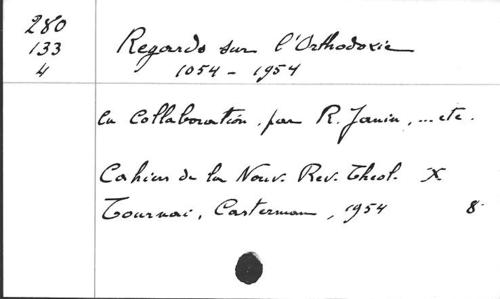 280
133
4
Regards sur l'Orthodoxie
1054 - 1954
en collaboration, par R. Janin, ... etc.
Cahiers de la Nouv. Rev. Théol. X
Tournai, Casterman, 1954 8°